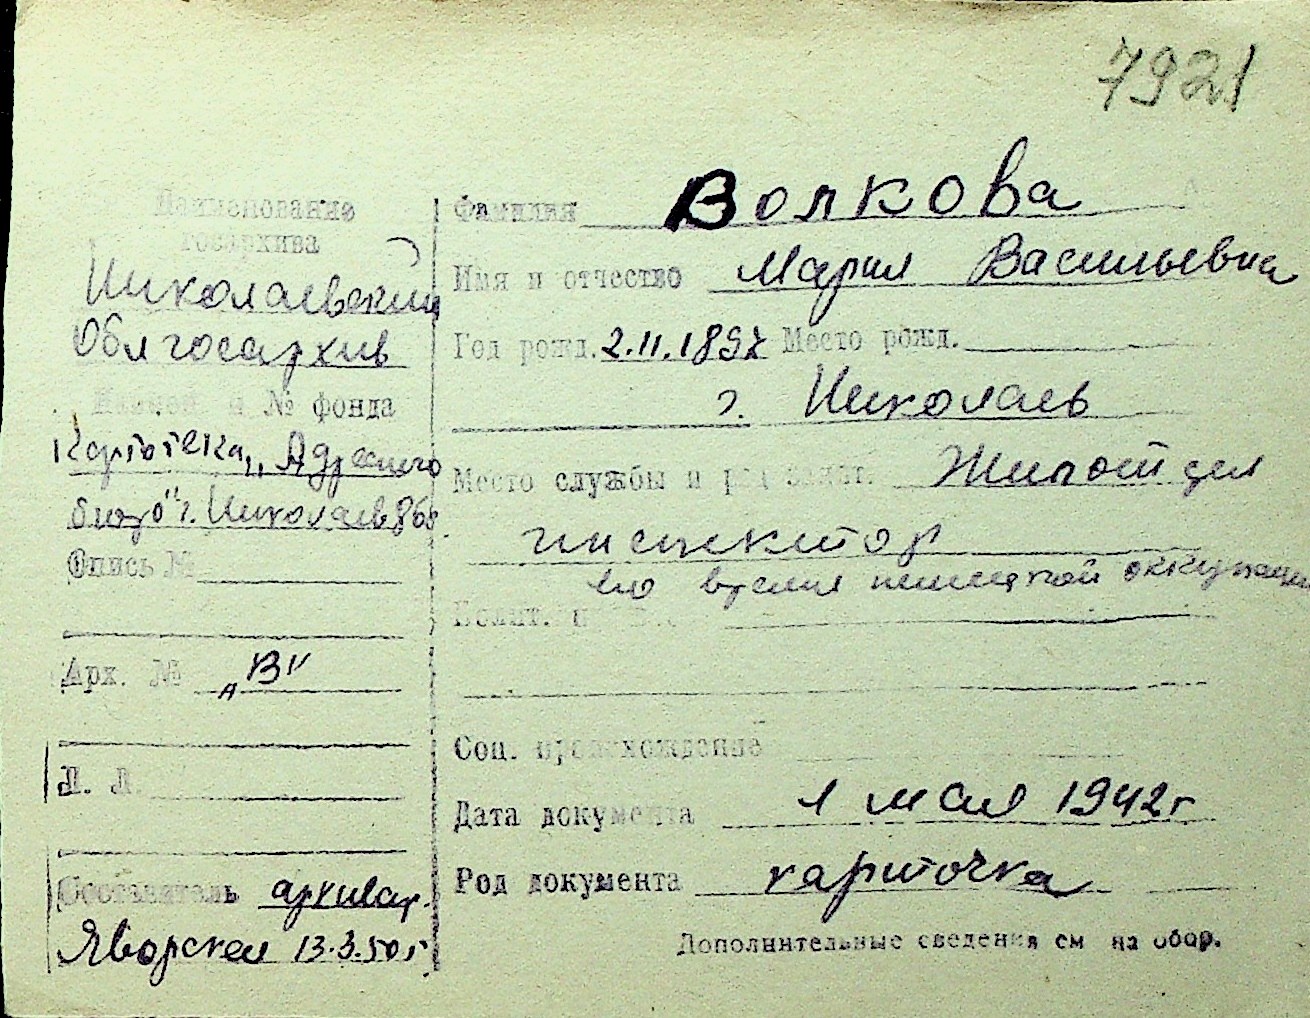 7921
Наименование
госархива
Николаевский
Облгосархив
Наимен. и № фонда
Картотека „Адресного
бюро" г. Николаев 865
Опись №
Арх. № „В"
Л. Л.
Составитель архивар.
Яворская 13.3.50 г.
Фамилия Волкова
Имя и отчество Мария Васильевна
Год рожд. 2.11.1897 Место рожд.
г. Николаев
Место службы и род занят. Жилотдел
инспектор
во время немецкой оккупации
Соц. происхождение
Дата документа 1 мая 1942 г
Род документа карточка
Дополнительные сведения см на обор.